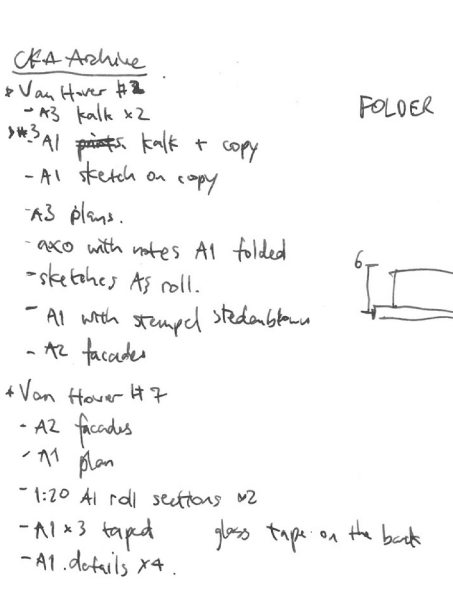 CKA Archive
* Van Hover #2
- A3 kalk x2
- A1 kalk + copy
- A1 sketch on copy
- A3 plans.
- axo with notes A1 folded
- sketches A3 roll.
- A1 with stempel stedenbouw
- A2 facades
* Van Hover #7
- A2 facades
- A1 plan
- 1:20 A1 roll sections x2
- A1 x 3 taped glass tape on the back
- A1 details x4.
FOLDER
6